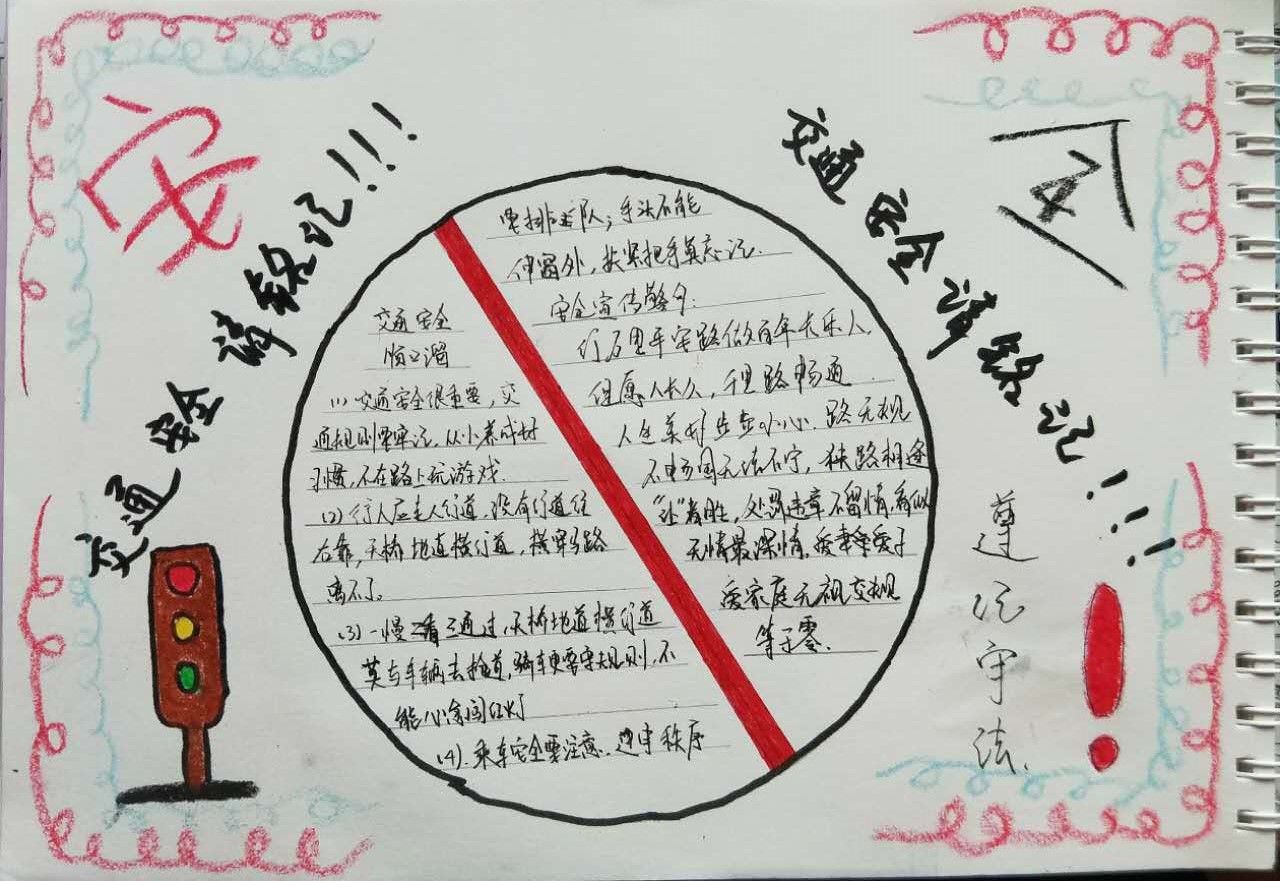 安
交通安全 请铭记!!!
交通安全请铭记!!!
交通安全
顺口溜
(1) 交通安全很重要,交
通规则要牢记,从小养成好
习惯,不在路上玩游戏.
(2) 行人应走人行道,没有行道往
右靠,天桥地道横行道,横穿马路
离不了。
(3) 一慢二看三通过,天桥地道横行道
莫与车辆去抢道,骑车更要守规则,不
能心急闯红灯
(4). 乘车安全要注意,遵守秩序
要排队;手头不能
伸窗外,扶紧把手莫忘记.
安全宣传警句.
行万里平安路做百年长乐人.
但愿人长久,千里路畅通
人生美好步步小心.路无规
不畅国无法不宁,狭路相逢
“让”者胜,处罚违章不留情,看似
无情最深情,爱妻爱子
爱家庭无视交规
等于零.
遵纪守法.